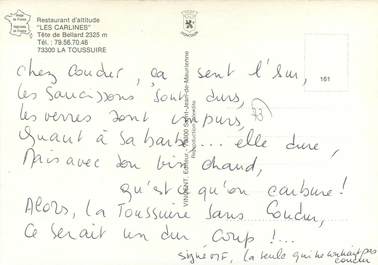 Restaurant d'altitude
"LES CARLINES"
Tête de Bellard 2325 m
Tél. : 79.56.70.46
73300 LA TOUSSUIRE
161
73
Chez Coudur, ça sent l'sur,
les saucissons sont durs,
les verres sont impurs,
Quant à sa barbe... elle dure,
Mais avec son vin chaud,
qu'est ce qu'on carbure!
Alors, La Toussuire sans Coudur,
ce serait un dur coup !...
signé MF, la seule qui ne
pas
Coudur
VINCENT, Editeur, 73300 Saint-Jean-de-Maurienne
Reproduction interdite